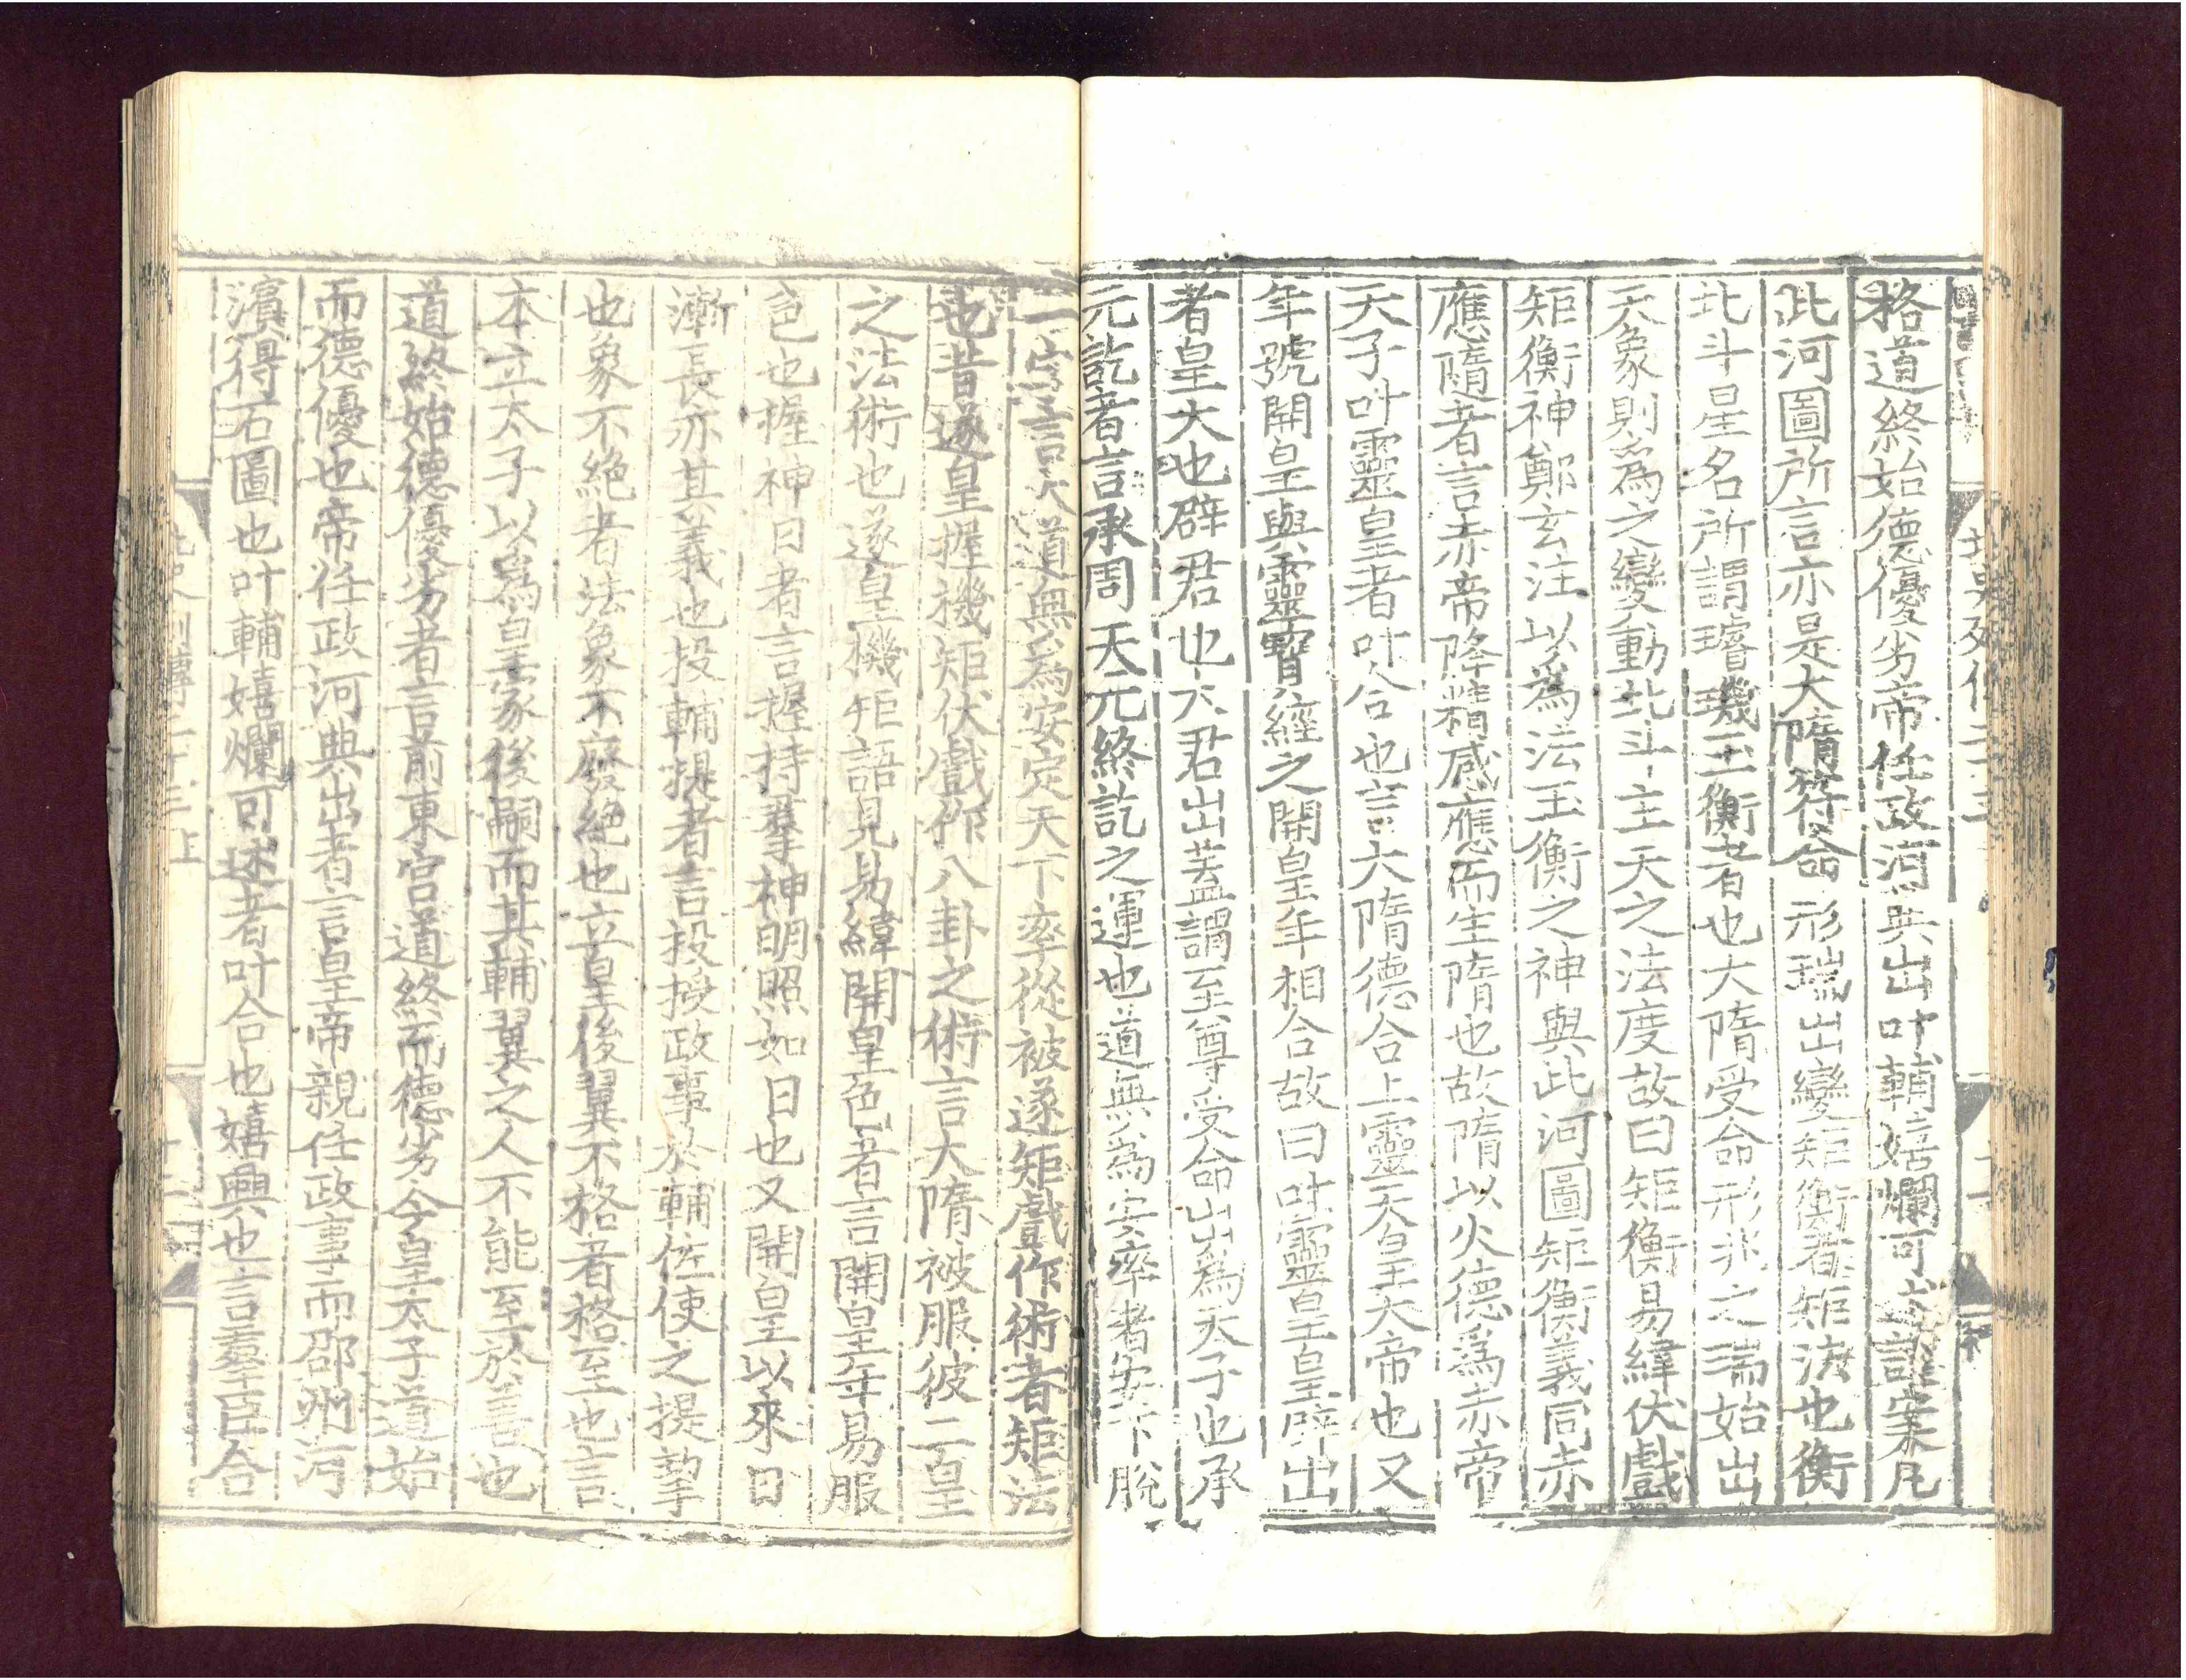 格道終始德優劣帝任政河典出叶輔嬉爛可述謹案凡
此河圖所言亦是大隋符命形瑞出變矩衡者矩法也衡
北斗星名所謂璿璣玉衡者也大隋受命形兆之瑞始出
天象則為之變動北斗主天之法度故曰矩衡易緯伏戲
矩衡神鄭玄注以為法玉衡之神與此河圖矩衡義同赤
應隨者言赤帝降精感應而生隋也故隋以火德為赤帝
天子叶靈皇者叶合也言大隋德合上靈天皇大帝也又
年號開皇與靈寶經之開皇年相合故曰叶靈皇皇辟出
者皇大也辟君也大君出盖謂至尊受命出為天子也承
元訖者言承周天元終訖之運也道無為安率者安下脫
一字言大道無為安定天下率從被遂矩戲作術者矩法
也昔遂皇握機矩伏戲作八卦之術言大隋被服彼二皇
之法術也遂皇機矩語見易緯開皇色者言開皇年易服
色也握神日者言握持羣神明照如日也又開皇以來日
漸長亦其義也投輔提者言投授政事於輔佐使之提挈
也象不絕者法象不廢絕也立皇後翼不格者格至也言
本立太子以為皇家後嗣而其輔翼之人不能至於善也
道終始德優劣者言前東宮道終而德劣今皇太子道始
而德優也帝任政河典出者言皇帝親任政事而邵州河
濱得石圖也叶輔嬉爛可述者叶合也嬉興也言羣臣合
北史列傳二十三上
十二